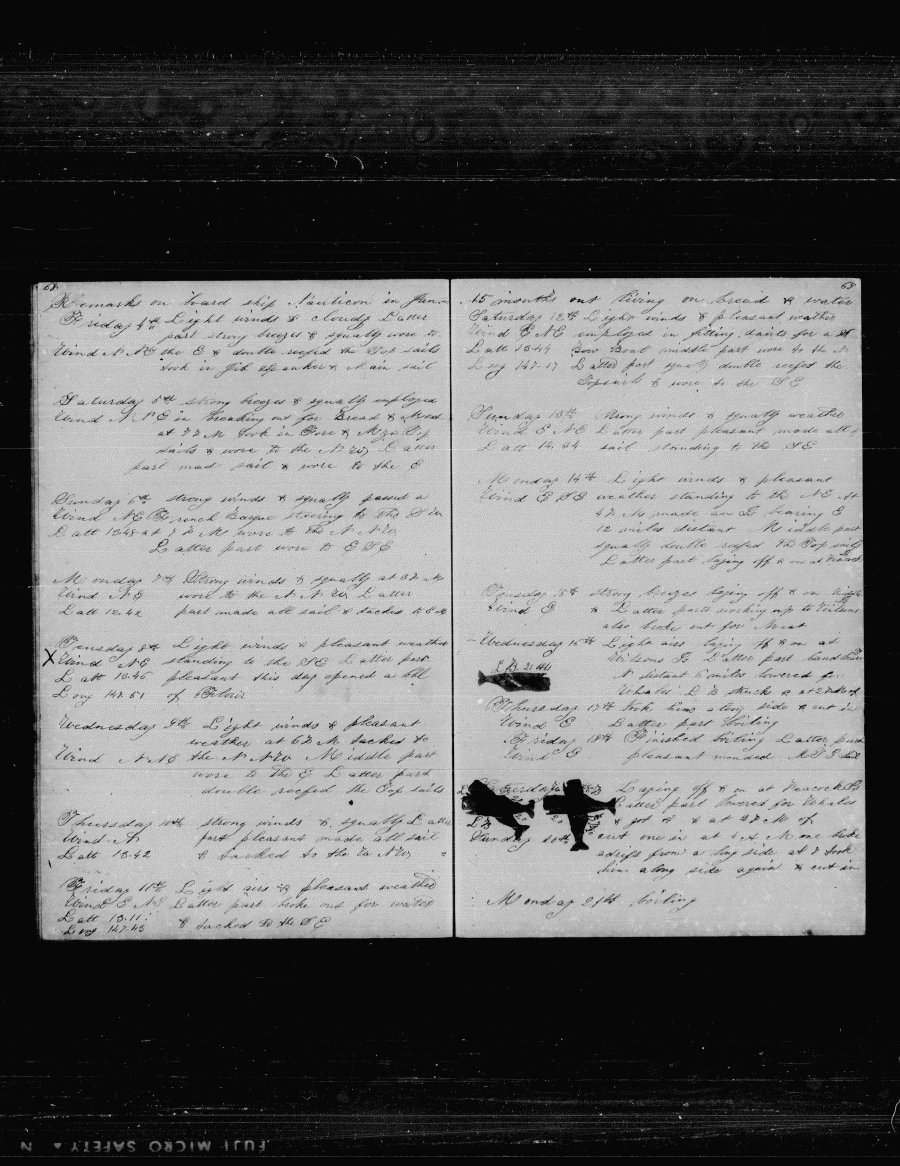 68
Remarks on board ship Nauticon in June
Friday 4th Light winds & cloudy Latter
part strong breezes & squally wore to
Wind NNE the E & double reefed the Top sails
took in Jib spanker & Main sail
Saturday 5th strong breezes & squally employed
Wind NNE in breaking out for Bread & Meat
at 7 P M took in Fore & Mizn Top
sails & wore to the NW Latter
part mad sail & wore to the E
Sunday 6th strong winds & squally passed a
Wind NE French Barque steering to the SW
Latt 13.48 at 7 P M wore to the N NW
Latter part wore to ESE
Monday 7th Strong winds & squally at 3 P M
Wind NE wore to the N NW Latter
Latt 13.42 part made all sail & tacked to ESE
Tuesday 8th Light winds & pleasant weather
X Wind NE standing to the SE Latter part
Latt 13.46 pleasant this day opened a bbl
Long 147.51 of Flour
Wednesday 9th Light winds & pleasant
weather at 6 P M tacked to
Wind NNE the N NW Middle part
wore to the E Latter part
double reefed the Top sails
Thursday 10th strong winds & squally Latter
Wind N part pleasant made all sail
Latt 13.42 & tacked to the W NW
Friday 11th Light airs & pleasant weather
Wind E NE Latter part broke out for water
Latt 13.11
Long 147.43 & tacked to the SE
69
15 months out living on bread & water
Saturday 12th Light winds & pleasant weather
Wind E NE employed in fixing davits for a
Latt 13.44 Bow Boat middle part wore to the N
Long 147.17 Latter part squally double reefed the
Topsails & wore to the SE
Sunday 13th Strong winds & squally weather
Wind E NE Latter part pleasant made all
Latt 14.34 sail standing to the SE
Monday 14th Light winds & pleasant
Wind ESE weather standing to the NE At
4 P M made an Is bearing E
12 miles distant Middle part
squally double reefed the Top sails
Latter part laying off & on at
Tuesday 15th strong breezes laying off & on
Wind E & Latter parts working up to Wilsons
also broke out for Meat
Wednesday 16th Light airs laying off & on at
Wilsons Is Latter part land bear
N distant 6 miles lowered for
Whales LB struck & at 7 A M
Thursday 17th took him along side & cut in
Wind E Latter part boiling
Friday 18th Finished boiling Latter part
Wind E pleasant mended
Saturday Laying off & on at Peacock Is
Latter part lowered for Whales
& got 2 & at 4 P M
Sunday 20th cut one in at 4 A M one broke
adrift from a long side at 7 took
him along side again & cut in
Monday 21st boiling
FUJI MICRO SAFETY N